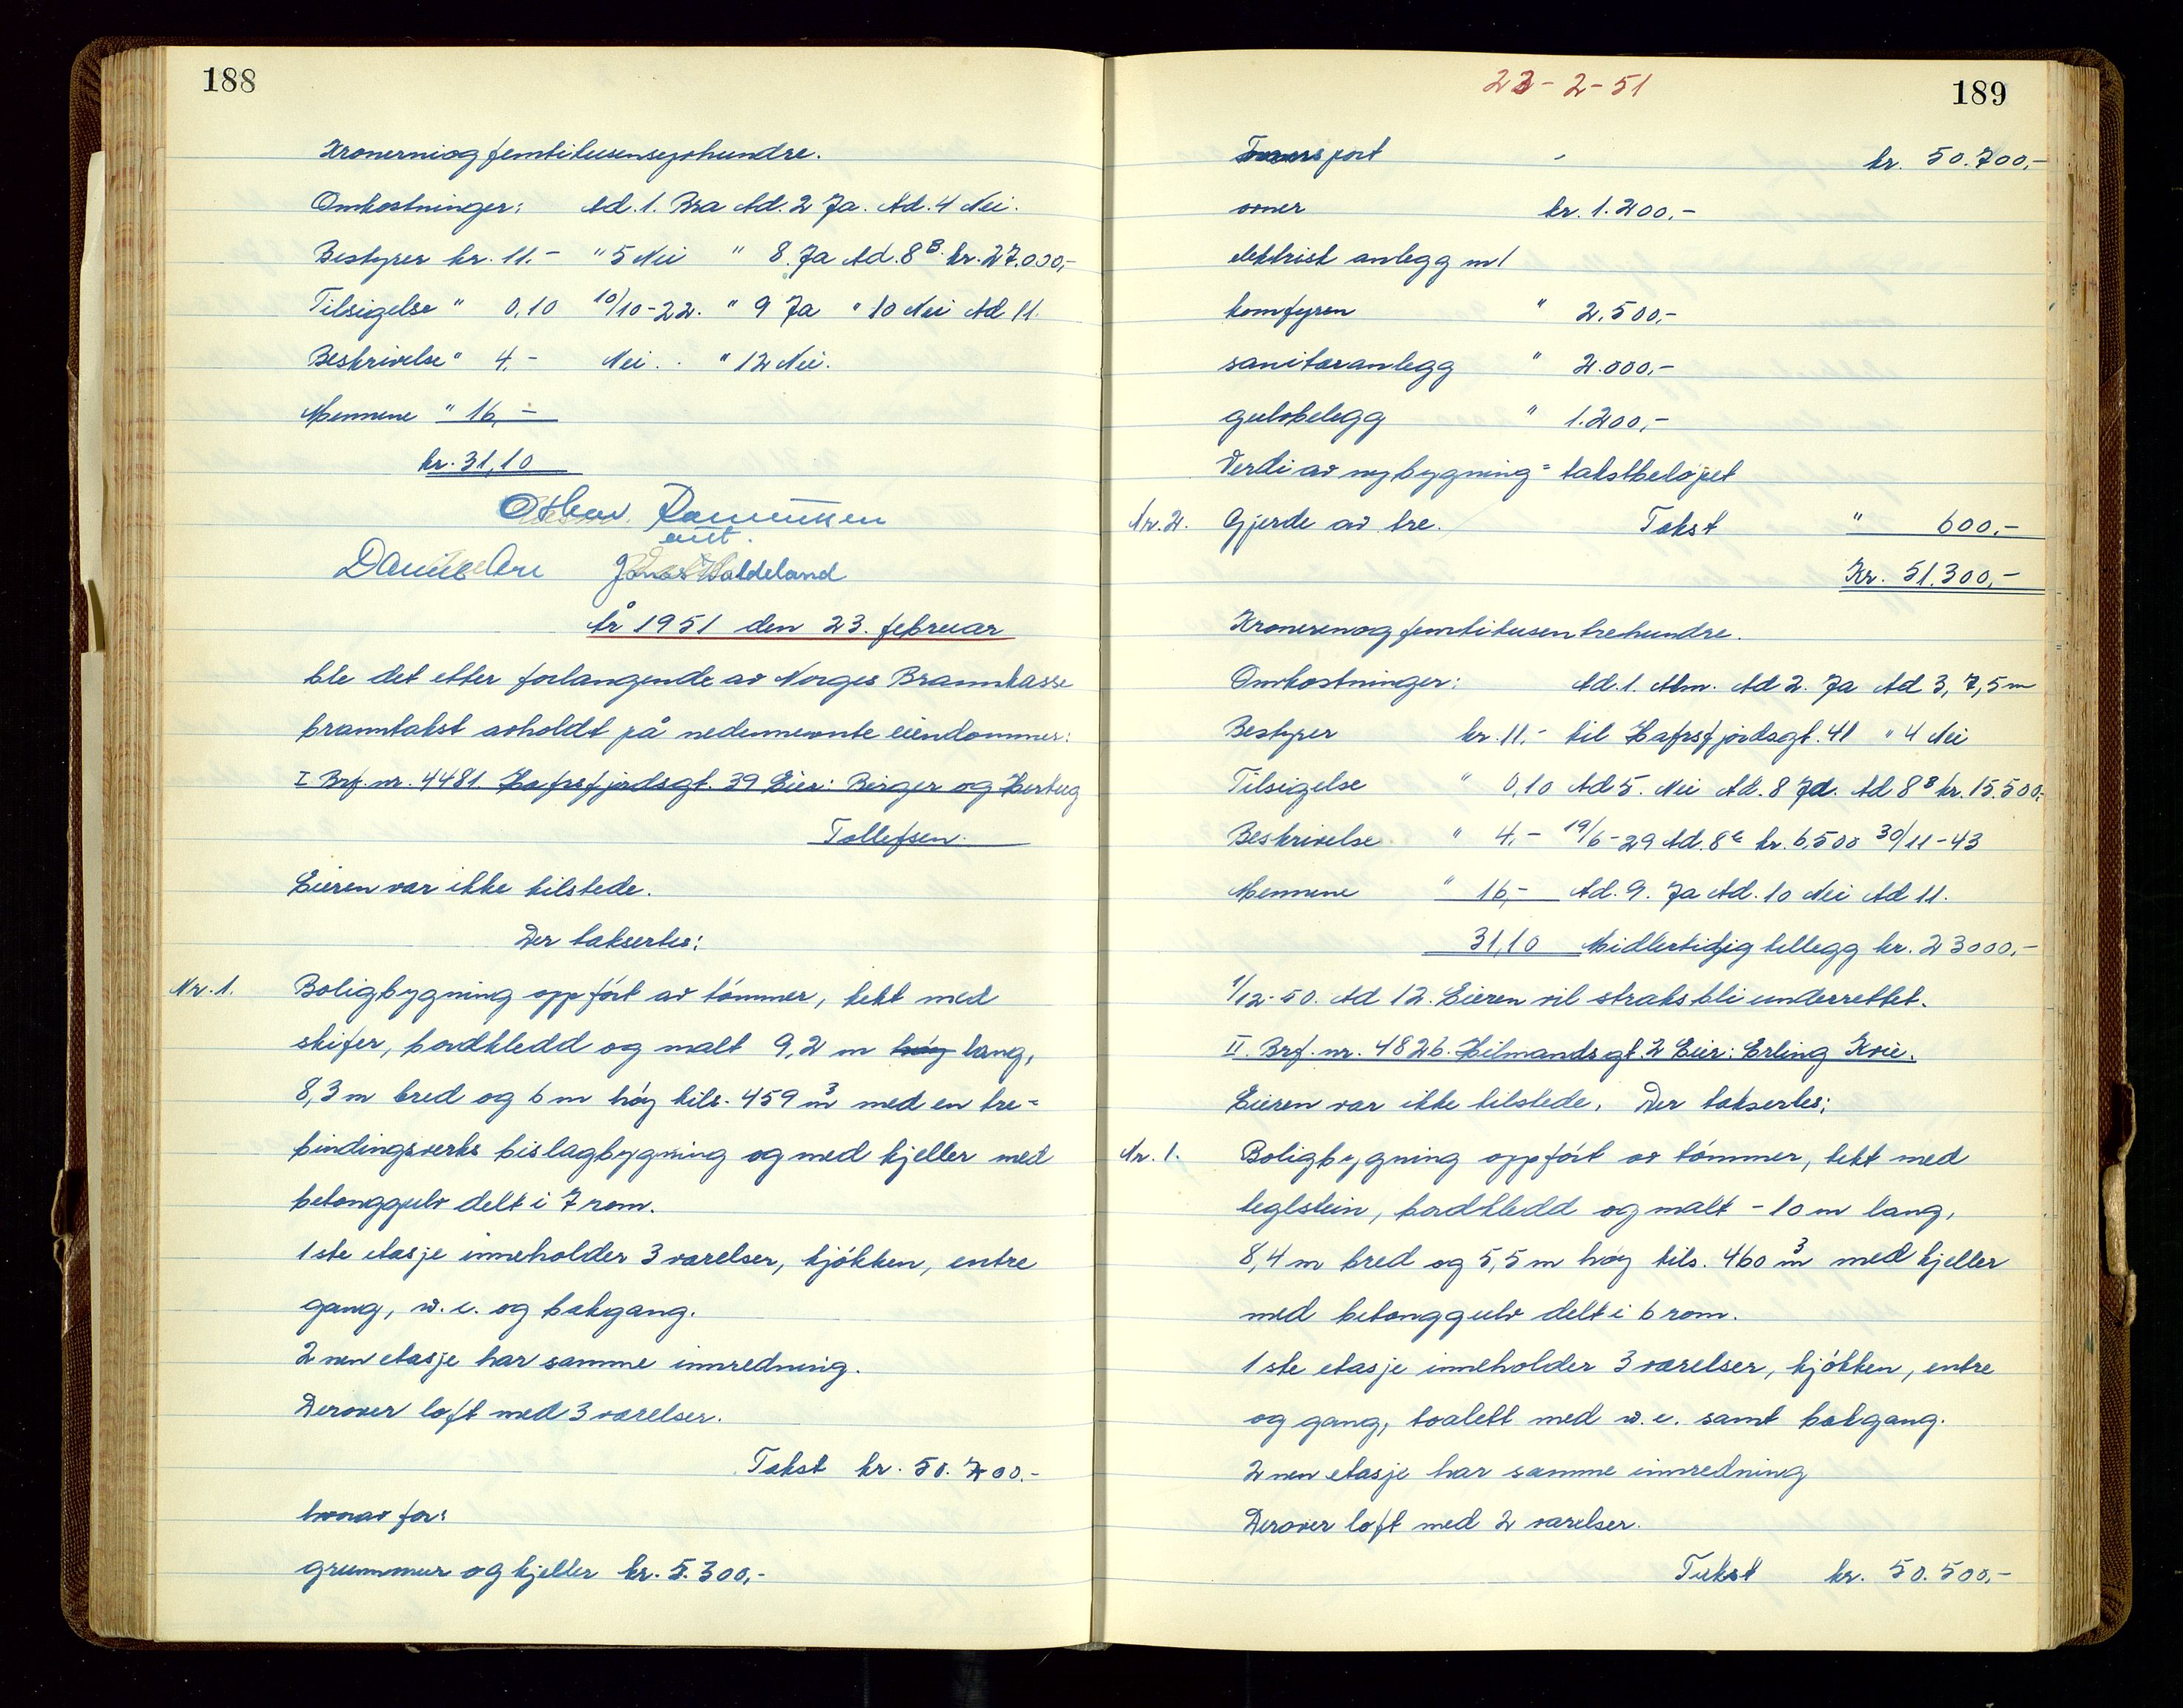 188
Kronerniogfemtitusensyvhundre.
Omkostninger: Ad. 1. Bra Ad. 2 Ja. Ad. 4 Nei.
Bestyrer kr. 11.- " 5 Nei " 8. Ja Ad. 8B. kr. 27.000,-
Tilsigelse " 0,10 10/10-22. " 9 Ja " 10 Nei Ad 11.
Beskrivelse " 4,- Nei. " 12 Nei.
Mennene " 16,-
kr. 31,10
Rasmussen
Jonas Waldeland
År 1951 den 23. februar
ble det etter forlangende av Norges Brannkasse
branntakst avholdt på nedennevnte eiendommer:
I Brf. nr. 4481. Hafrsfjordsgt. 39 Eier: Birger og Hertug
Tollefsen.
Eieren var ikke tilstede.
Der taksertes:
Nr. 1. Boligbygning oppført av tømmer, tekt med
skifer, bordkledd og malt 9,2 m høy lang,
8,3 m bred og 6 m høy tils. 459 m3 med en tre=
bindingsverks bislagbygning og med kjeller med
betonggulv delt i 7 rom.
1ste etasje inneholder 3 værelser, kjøkken, entre
gang, w.c. og bakgang.
2nen etasje har samme innredning.
Derover loft med 3 værelser.
Takst kr. 50.700.-
hvorav for:
grunnmur og kjeller kr. 5.300,-
23-2-51
189
Transport kr. 50.700,-
ovner kr. 1.200,-
elektrisk anlegg m/
komfyren " 2.500,-
sanitæranlegg " 2.000,-
gulvbelegg " 1.200,-
Verdi av nybygning = takstbeløpet
Nr. 2. Gjerde av tre. Takst " 600,-
Kr. 51.300,-
Kronerenogfemtitusentrehundre.
Omkostninger: Ad. 1. Alm. Ad 2. Ja Ad 3, 7,5 m
Bestyrer kr. 11,- til Hafrsfjordsgt. 41 " 4 Nei
Tilsigelse " 0,10 Ad 5. Nei Ad. 8 Ja. Ad 8B kr. 15.500,-
Beskrivelse " 4,- 19/6-29 Ad. 8c kr. 6,500 30/11-43
Mennene " 16,- Ad. 9. Ja Ad. 10 Nei Ad 11.
31,10 Midlertidig tillegg kr. 23000,-
1/12-50. Ad 12. Eieren vil straks bli underrettet.
II. Brf. nr. 4826. Hilmandsgt. 2 Eier: Erling Kvie.
Eieren var ikke tilstede. Der taksertes:
Nr. 1. Boligbygning oppført av tømmer, tekt med
teglstein, bordkledd og malt - 10 m lang,
8,4 m bred og 5,5 m høy tils. 460 m3 med kjeller
med betonggulv delt i 6 rom.
1ste etasje inneholder 3 værelser, kjøkken, entre
og gang, toalett med w.c. samt bakgang.
2nen etasje har samme innredning
Derover loft med 2 værelser.
Takst kr. 50.500,-